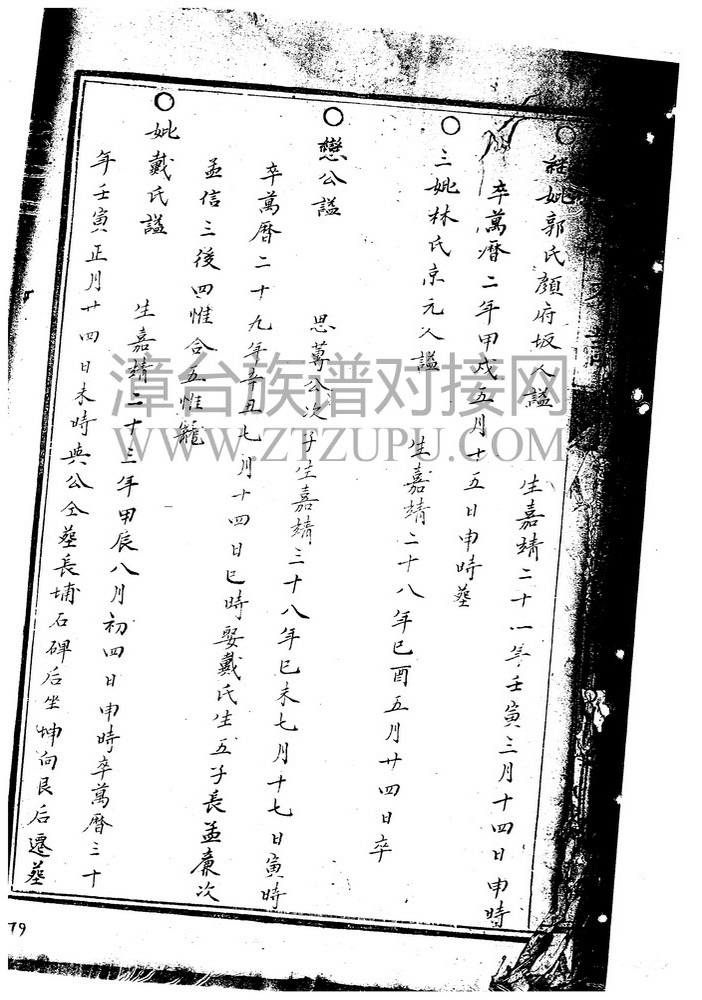 妣郭氏顏府坂人謚　生嘉靖二十一年壬寅三月十四日申時
卒萬曆二年甲戌五月十五日申時墓
三妣林氏京元人謚　生嘉靖二十八年己酉五月廿四日卒
懋公謚　思萬公次子生嘉靖三十八年已未七月十七日寅時
卒萬曆二十九年辛丑七月十四日巳時娶戴氏生五子長孟廉次
孟信三後四惟合五惟寵
妣戴氏謚　生嘉靖二十三年甲辰八月初四日申時卒萬曆三十
年壬寅正月廿四日未時與公仝墓長埔石碑后坐坤向艮后遷墓
79
漳台族谱对接网
WWW.ZTZUPU.COM